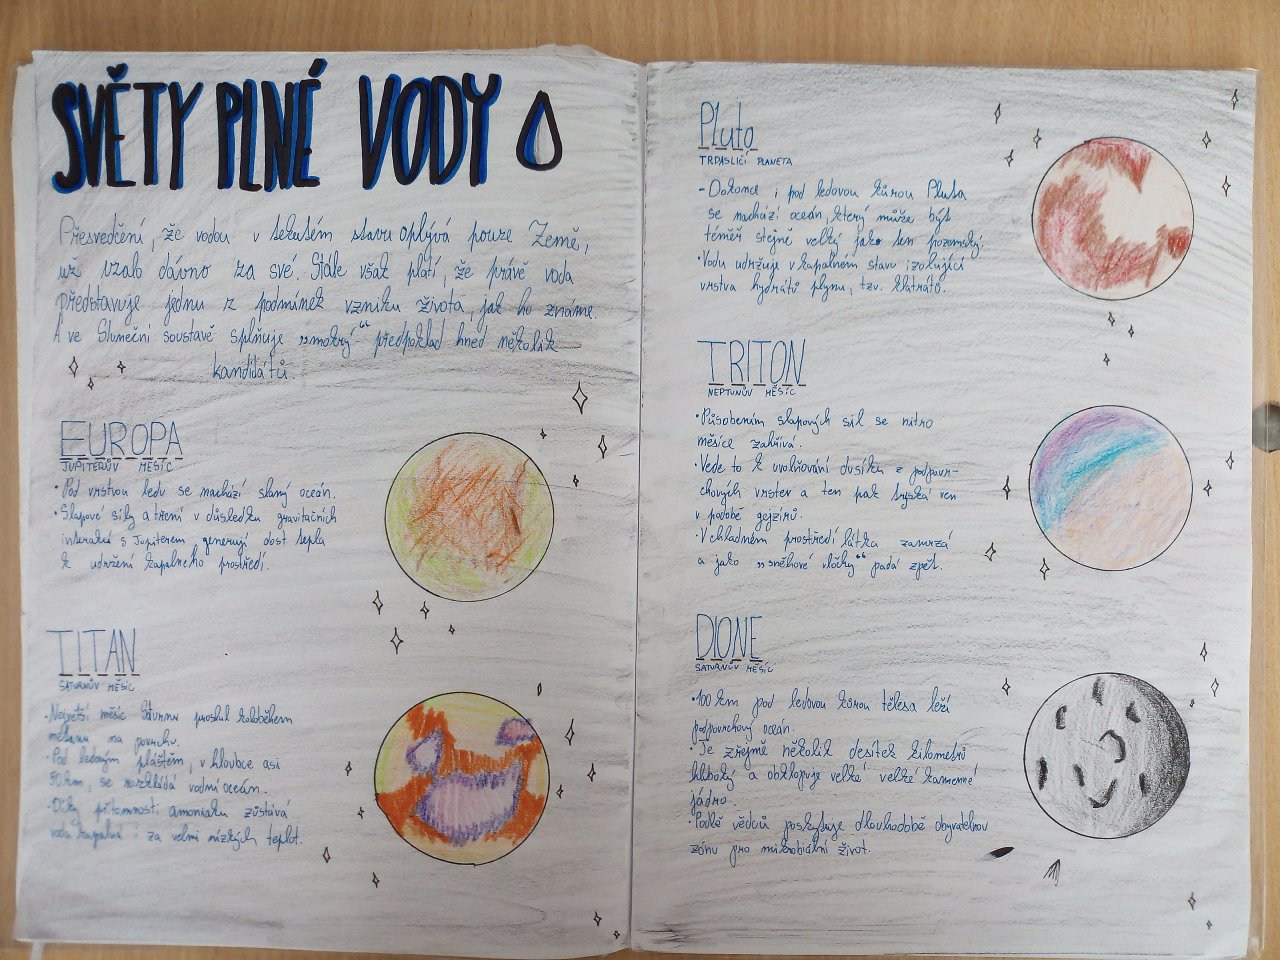 SVĚTY PLNÉ VODY
Přesvědčení, že vodou v tekutém stavu oplývá pouze Země,
už vzalo dávno za své. Stále však platí, že právě voda
představuje jednu z podmínek vzniku života, jak ho známe.
A ve Sluneční soustavě splňuje „mokrý“ předpoklad hned několik
kandidátů.
EUROPA
JUPITERŮV MĚSÍC
• Pod vrstvou ledu se nachází slaný oceán.
• Slapové síly a tření v důsledku gravitačních
interakcí s Jupiterem, generují dost tepla
k udržení kapalného prostředí.
TITAN
SATURNŮV MĚSÍC
• Největší měsíc Saturnu proslul koloběhem
metanu na povrchu.
• Pod ledovým pláštěm, v hloubce asi
50 km, se rozkládá vodní oceán.
• Díky přítomnosti amoniaku zůstává
voda kapalná i za velmi nízkých teplot.
Pluto
TRPASLIČÍ PLANETA
- Dokonce i pod ledovou kůrou Pluta
se nachází oceán, který může být
téměř stejně velký jako ten pozemský.
• Vodu udržuje v kapalném stavu izolující
vrstva hydrátů plynu, tzv. klatrátů.
TRITON
NEPTUNŮV MĚSÍC
• Působením slapových sil se nitro
měsíce zahřívá.
• Vede to k uvolňování dusíku z podpovr-
chových vrstev a ten pak tryská ven
v podobě gejzírů.
• V chladném prostředí látka zamrzá
a jako „sněhové vločky“ padá zpět.
DIONE
SATURNŮV MĚSÍC
• 100 km pod ledovou kůrou tělesa leží
podpovrchový oceán.
• Je zřejmě několik desítek kilometrů
hluboký a obklopuje velké velké kamenné
jádro.
• Podle vědců poskytuje dlouhodobě obyvatelnou
zónu pro mikrobiální život.